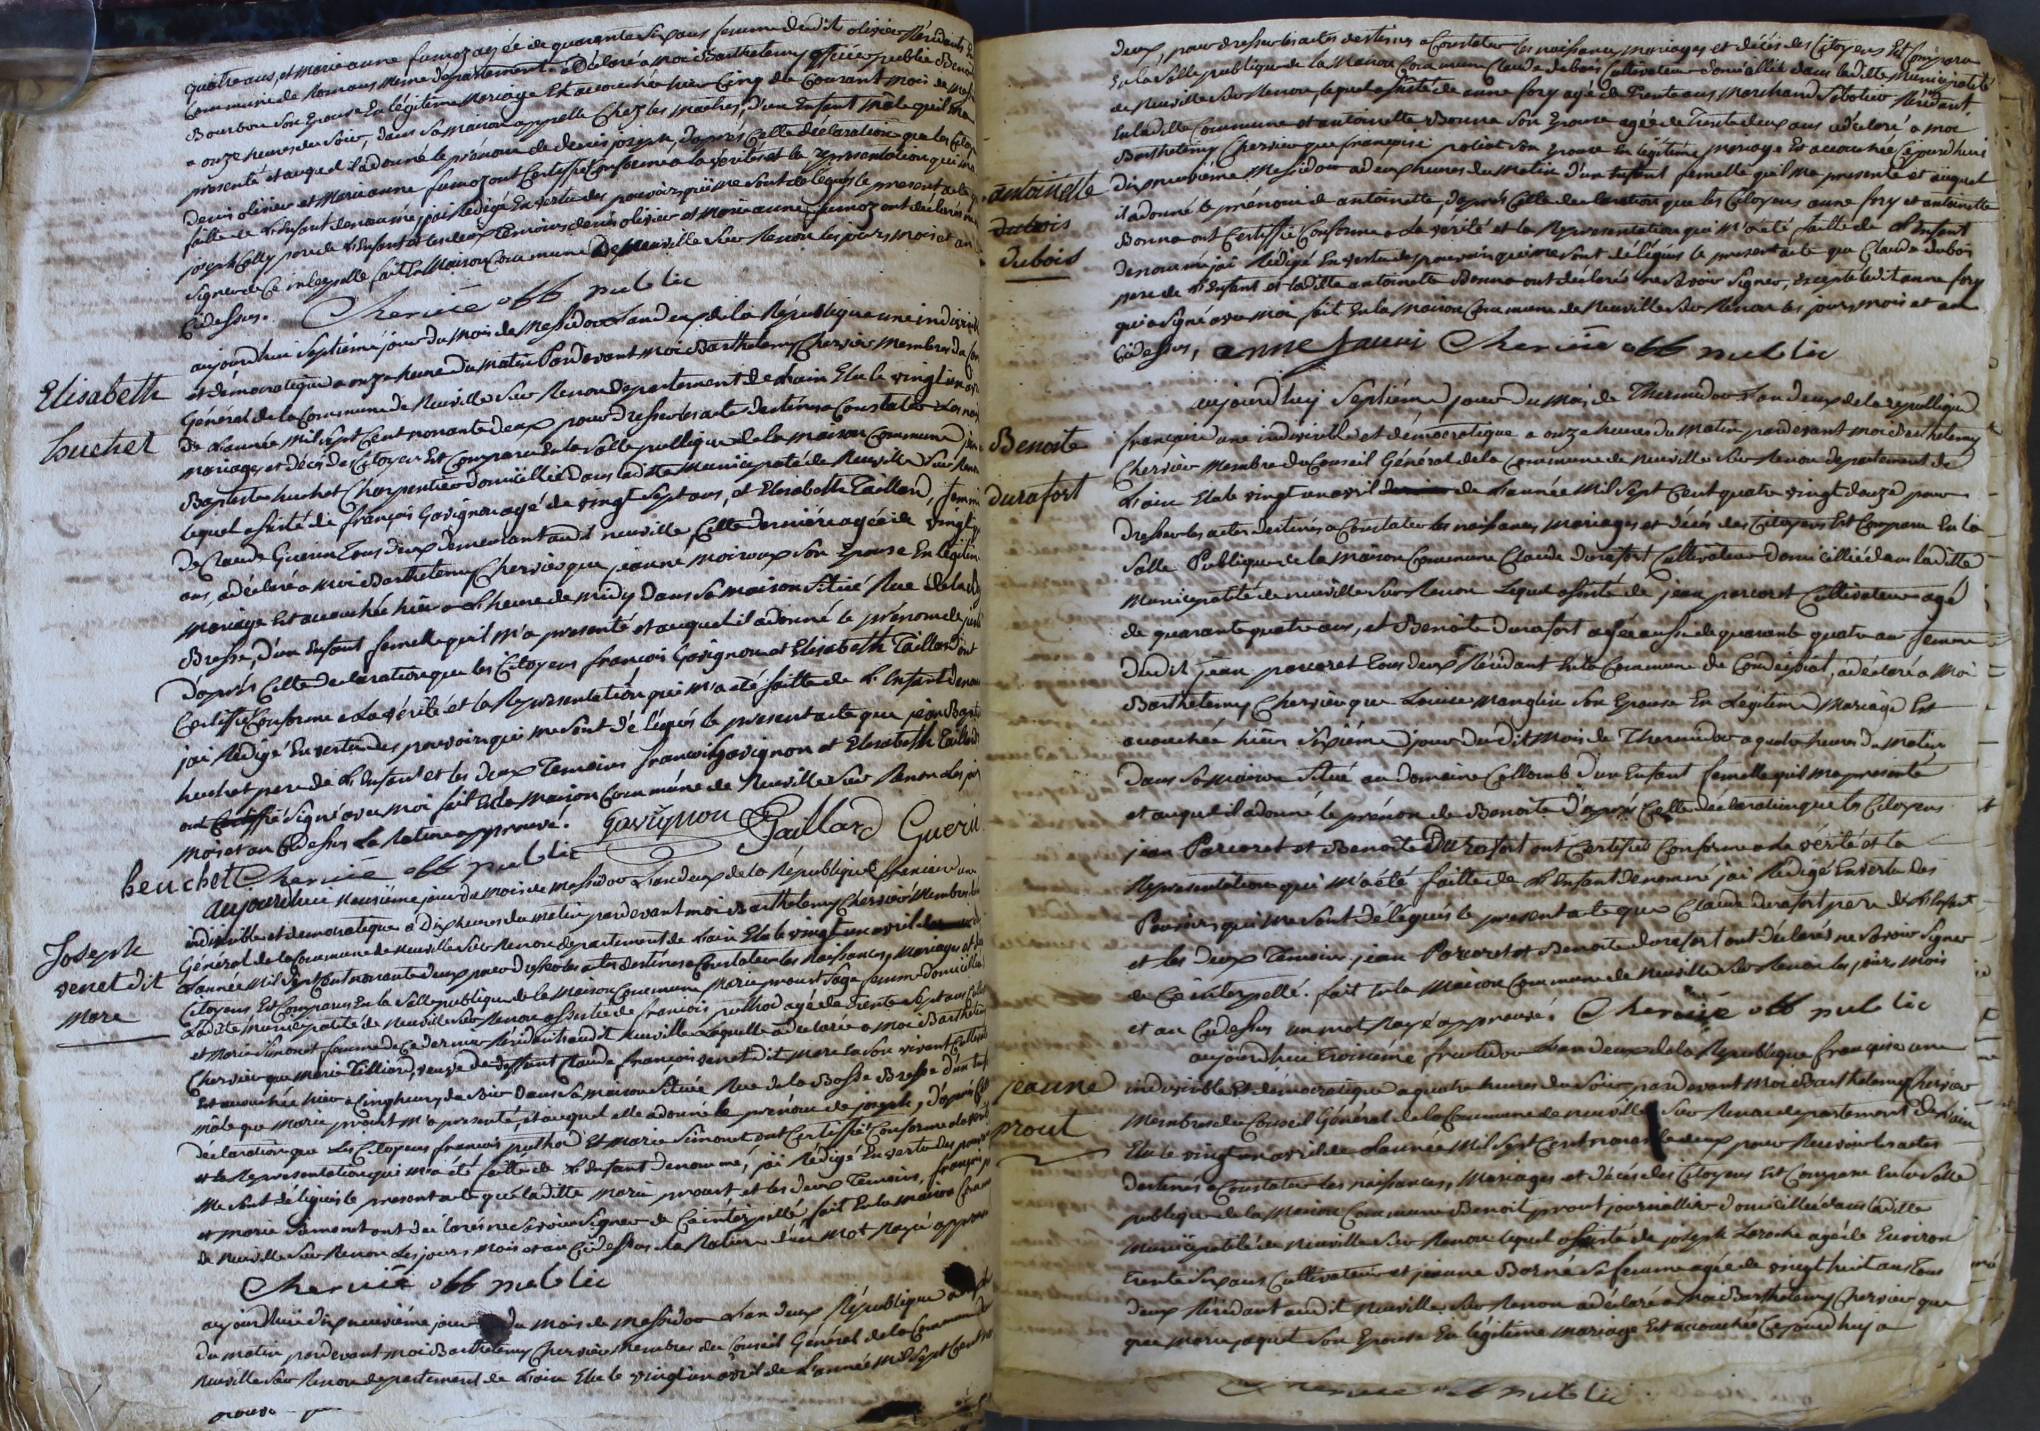 quatre ans, et marie anne fumoz agée de quarante six ans femme dudit olivier Résidants
Commune de Romans même département a Déclaré a moi Barthelemy officier public Benoi
Bourbon Son Epouse En légitime Mariage Est accouchée hier Cinq du Courant mois de mess
a onze heures du Soir, dans Sa maison appellé Chez les maches, d'un Enfant mâle qu'il ma
presenté et auquel il a donné le prénom de denis joseph, d'après Cette déclaration que les Citoy
denis olivier et Marie anne fumoz ont Certiffié Conforme a la vérité et la représentation qui ma
faitte de l'Enfant denommé, jai Rédigé En vertu des pouvoirs qui me Sont delegués le present acte
joseph Colly pere de l'Enfant et les deux Temoins denis olivier et Marie anne fumoz ont déclarés
Signer de Ce interpellé fait En la Maison Commune de Neuville Sur Renon les jours mois et an
Cidessus. Chervié off public
Elisabeth
huchet
aujourdhui Septiéme jour du Mois de Messidor L'an deux de la République une indivisi
et démocratique a onze heure du Matin Pardevant moi Barthelemy Chervier Membre du
Général de la Commune de Neuville Sur Renon departement de Lain Elu le vingt un av
de L'année Mil Sept Cent nonante deux pour dresser les acte destinés a Constater Les nai
mariages et décés des Citoyens Est Comparu En la Salle publique de la maison Commune jean
Baptiste huchet Charpentier domicillié Dans ladite Municipalité de Neuville Sur Renon
lequel assisté de françois Gavignon agé de vingt Sept ans, et Elisabeth Taillard, femme
de Claude Guerin Tous deux demeurant audit neuville Cette derniére agée de vingt
ans, a déclaré a Moi Barthelemy Chervier que jeanne moiroux Son Epouse En legitime
Mariage Est accouchée hier a L'heure de midy Dans Sa maison Situé Rue de la
Bresse, d'un Enfant femelle qu'il m'a presenté et auquel il a donné le prénom de
d'après Cette declaration que les Citoyens françois Gavignon et Elisabeth Taillard ont
Certiffié Conforme a La vérité et la Représentation qui m'a été faitte de L'Enfant denom
jai Rédigé En vertu des pouvoirs qui me Sont délégués le present acte que jean Bapt
huchet pere de L'Enfant et les deux Temoins françois Gavignon et Elisabeth Taillard
ont Certiffié Signé avec Moi fait En la Maison Commune de Neuville Sur Renon Les jo
Mois et an Cidessus La Rature approuvé. Gavignon Taillard Guerin
heuchet Chervié off public
Joseph
venet dit
More
aujourdhui Neuviéme jour du Mois de Messidor L'an deux de la République françoise une
indivisible et democratique a Dix heures du Matin pardevant moi Barthelemy Chervier Membre du
Général de la Commune de Neuville Sur Renon departement de Lain Elu le vingt un avril
L'année Mil Sept Cent nonante deux pour dresser les actes destinés a Constater les Naissances, Mariages et
Citoyens Est Comparu En la Salle publique de la Maison Commune Marie prout Sage femme domicilliée
Ladite Municipalité de Neuville Sur Renon assistée de francois puthod agé de Trente Sept ans
et Marie Simonet femme de Ce dernier Résidants audit Neuville Laquelle a declarée a Moi Barthelemy
Chervier que Marie Tilliard, veuve de deffunt Claude françois venet dit More En Son vivant Cultivat
Est accouchée hier a Cinq heures du Soir Dans Sa maison Située Rue de la Basse Bresse d'un Enf
mâle que Marie prout m'a présenté et auquel elle a donné le prénom de joseph, d'après Cette
declaration que Les Citoyens francois puthod Et Marie Simonet ont Certiffié Conforme a la verité
et la Représentation qui m'a été faitte de L'Enfant denommé, jai Rédigé En vertu des pouvoirs
Me Sont délégués le present acte que ladite Marie prout et les deux Temoins, françois
et marie Simonet ont declarés ne Savoir Signer de Ce interpellé, fait En la Maison Commune
de Neuville Sur Renon Les jours Mois et an Cidessus La Rature d'un Mot Rayé approu
Chervié off public
aujourdhui dix neuviéme jour du mois de Messidor L'an deux République
du matin pardevant moi Barthelemy Chervier Membre du Conseil Général de la Commune de
Neuville Sur Renon departement de Lain Elu le vingt un avril de L'année Mil Sept Cent
antoinette
dubois
dubois
deux, pour dresser les actes destinés a Constater les naissances mariages et décés des Citoyens Est Comparu
En la Salle publique de la Maison Commune Claude dubois Cultivateur domicillié dans ladite Municipalité
de Neuville Sur Renon, lequel assisté de anne fory agé de Trente ans Marchand Sabotier Résidant
En ladite Commune et antoinette Bonna Son Epouse agée de Trente deux ans a déclaré a moi
Barthelemy Chervier que françoise poliat Son Epouse En légitime mariage Est accouchée Cejourdhui
dix neuviéme Messidor a deux heures du Matin d'un Enfant femelle qu'il ma presenté et auquel
il a donné le prénom de antoinette, daprès Cette declaration que les Citoyens anne fory et antoinette
Bonna ont Certiffié Conforme a La vérité et la Représentation qui m'a été faitte de L'Enfant
denommé jai Rédigé En vertu des pouvoirs qui me Sont délégués le present acte que Claude dubois
pere de L'Enfant et ladite antoinette Bonna ont déclarés ne Savoir Signer, excepté ledit anne fory
qui a Signé avec Moi, fait En la Maison Commune de Neuville Sur Renon les jours mois et an
Cidessus, anne fauri Chervié off public
Benoite
durafort
aujourdhuy Septiéme jour du Mois de Thermidor L'an deux de la republique
française une indivisible et démocratique a onze heures du Matin pardevant moi Barthelemy
Chervier Membre du Conseil Général de la Commune de Neuville Sur Renon departement de
Lain Elu le vingt un avril de L'année Mil Sept Cent quatre vingt douze pour
dresser les actes destinés a Constater les naissances, Mariages et décés des Citoyens Est Comparu En la
Salle Publique de la Maison Commune Claude durafort Cultivateur domicillié dans ladite
Municipalité de neuville Sur Renon Lequel assisté de jean porcoret Cultivateur agé
de quarante quatre ans, et Benoite durafort agée aussi de quarante quatre ans femme
dudit jean porcoret Tous deux Résidant En la Commune de Condeissiat, a déclaré a Moi
Barthelemy Chervier que Louise Manglin Son Epouse En Légitime Mariage Est
accouchée hier Sixiéme jour dudit Mois de Thermidor a quatre heures du matin
dans Sa maison Situé au domaine Collomb d'un Enfant femelle qu'il ma presenté
et auquel il a donné le prénom de Benoite D'après Cette déclaration que les Citoyens
jean Porcoret et Benoite Durafort ont Certiffiés Conforme a La vérité et la
Représentation qui m'a été faitte de L'Enfant denommé jai Rédigé En vertu des
Pouvoirs qui me Sont délégués le present acte que Claude durafort pere de L'Enfant
et les deux Temoins jean Porcoret et Benoite durafort ont déclarés ne Savoir Signer
de Ce interpellé. fait En la Maison Commune de Neuville Sur Renon les jours mois
et an Cidessus un mot Rayé approuvé. Chervié off public
jeanne
prout
aujourdhui Troisiéme fructidor L'an deux de la République française une
indivisible Et démocratique a quatre heures du Soir pardevant Moi Barthelemy Chervier
Membre du Conseil Général de la Commune de neuville Sur Renon departement de Lain
Elu le vingt un avril de L'année Mil Sept Cent nonante deux pour Recevoir les actes
destinés a Constater les naissances, Mariages et décés des Citoyens Est Comparu En la Salle
publique de la Maison Commune Benoit prout journallier domicillié dans ladite
Municipalité de Neuville Sur Renon lequel assisté de joseph Laroche agé de Environ
Trente Six ans Cultivateur et jeanne Borne Sa femme agée de vingt huit ans Tous
deux Résidant audit Neuville Sur Renon a déclaré a Moi Barthelemy Chervier que
que Marie paquet Son Epouse En légitime Mariage Est accouchée Cejourdhuy a
Chervié off public